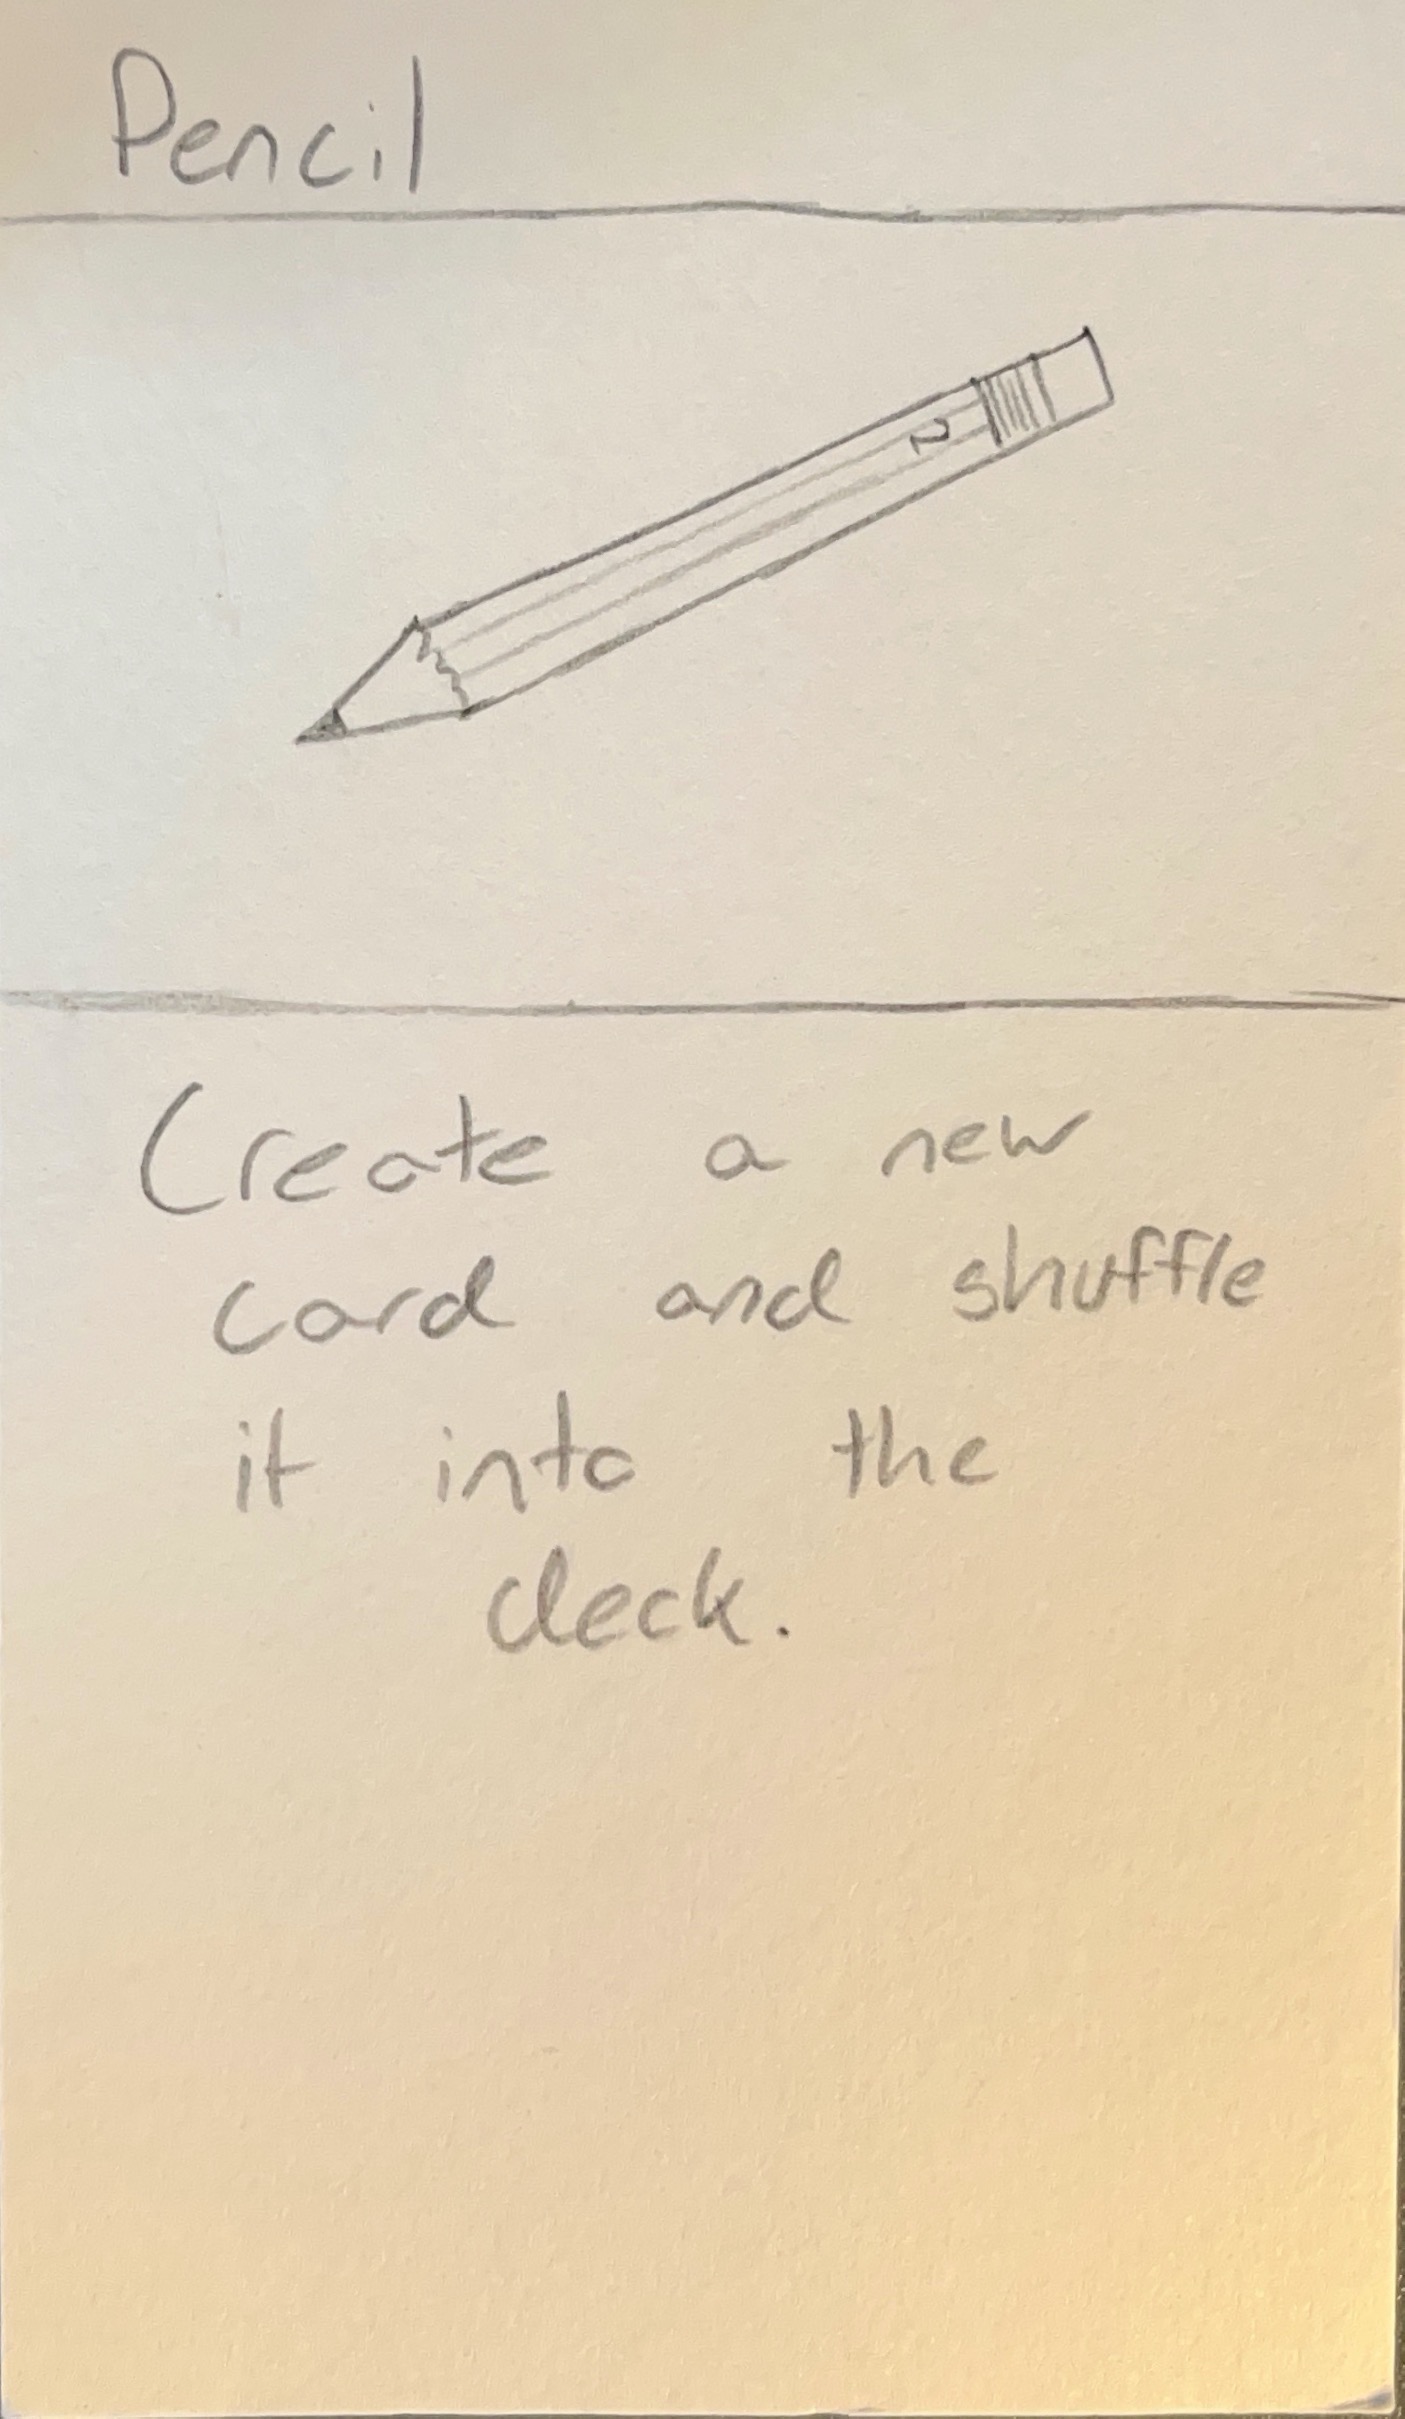 Pencil
2
Create a new
card and shuffle
it into the
deck.